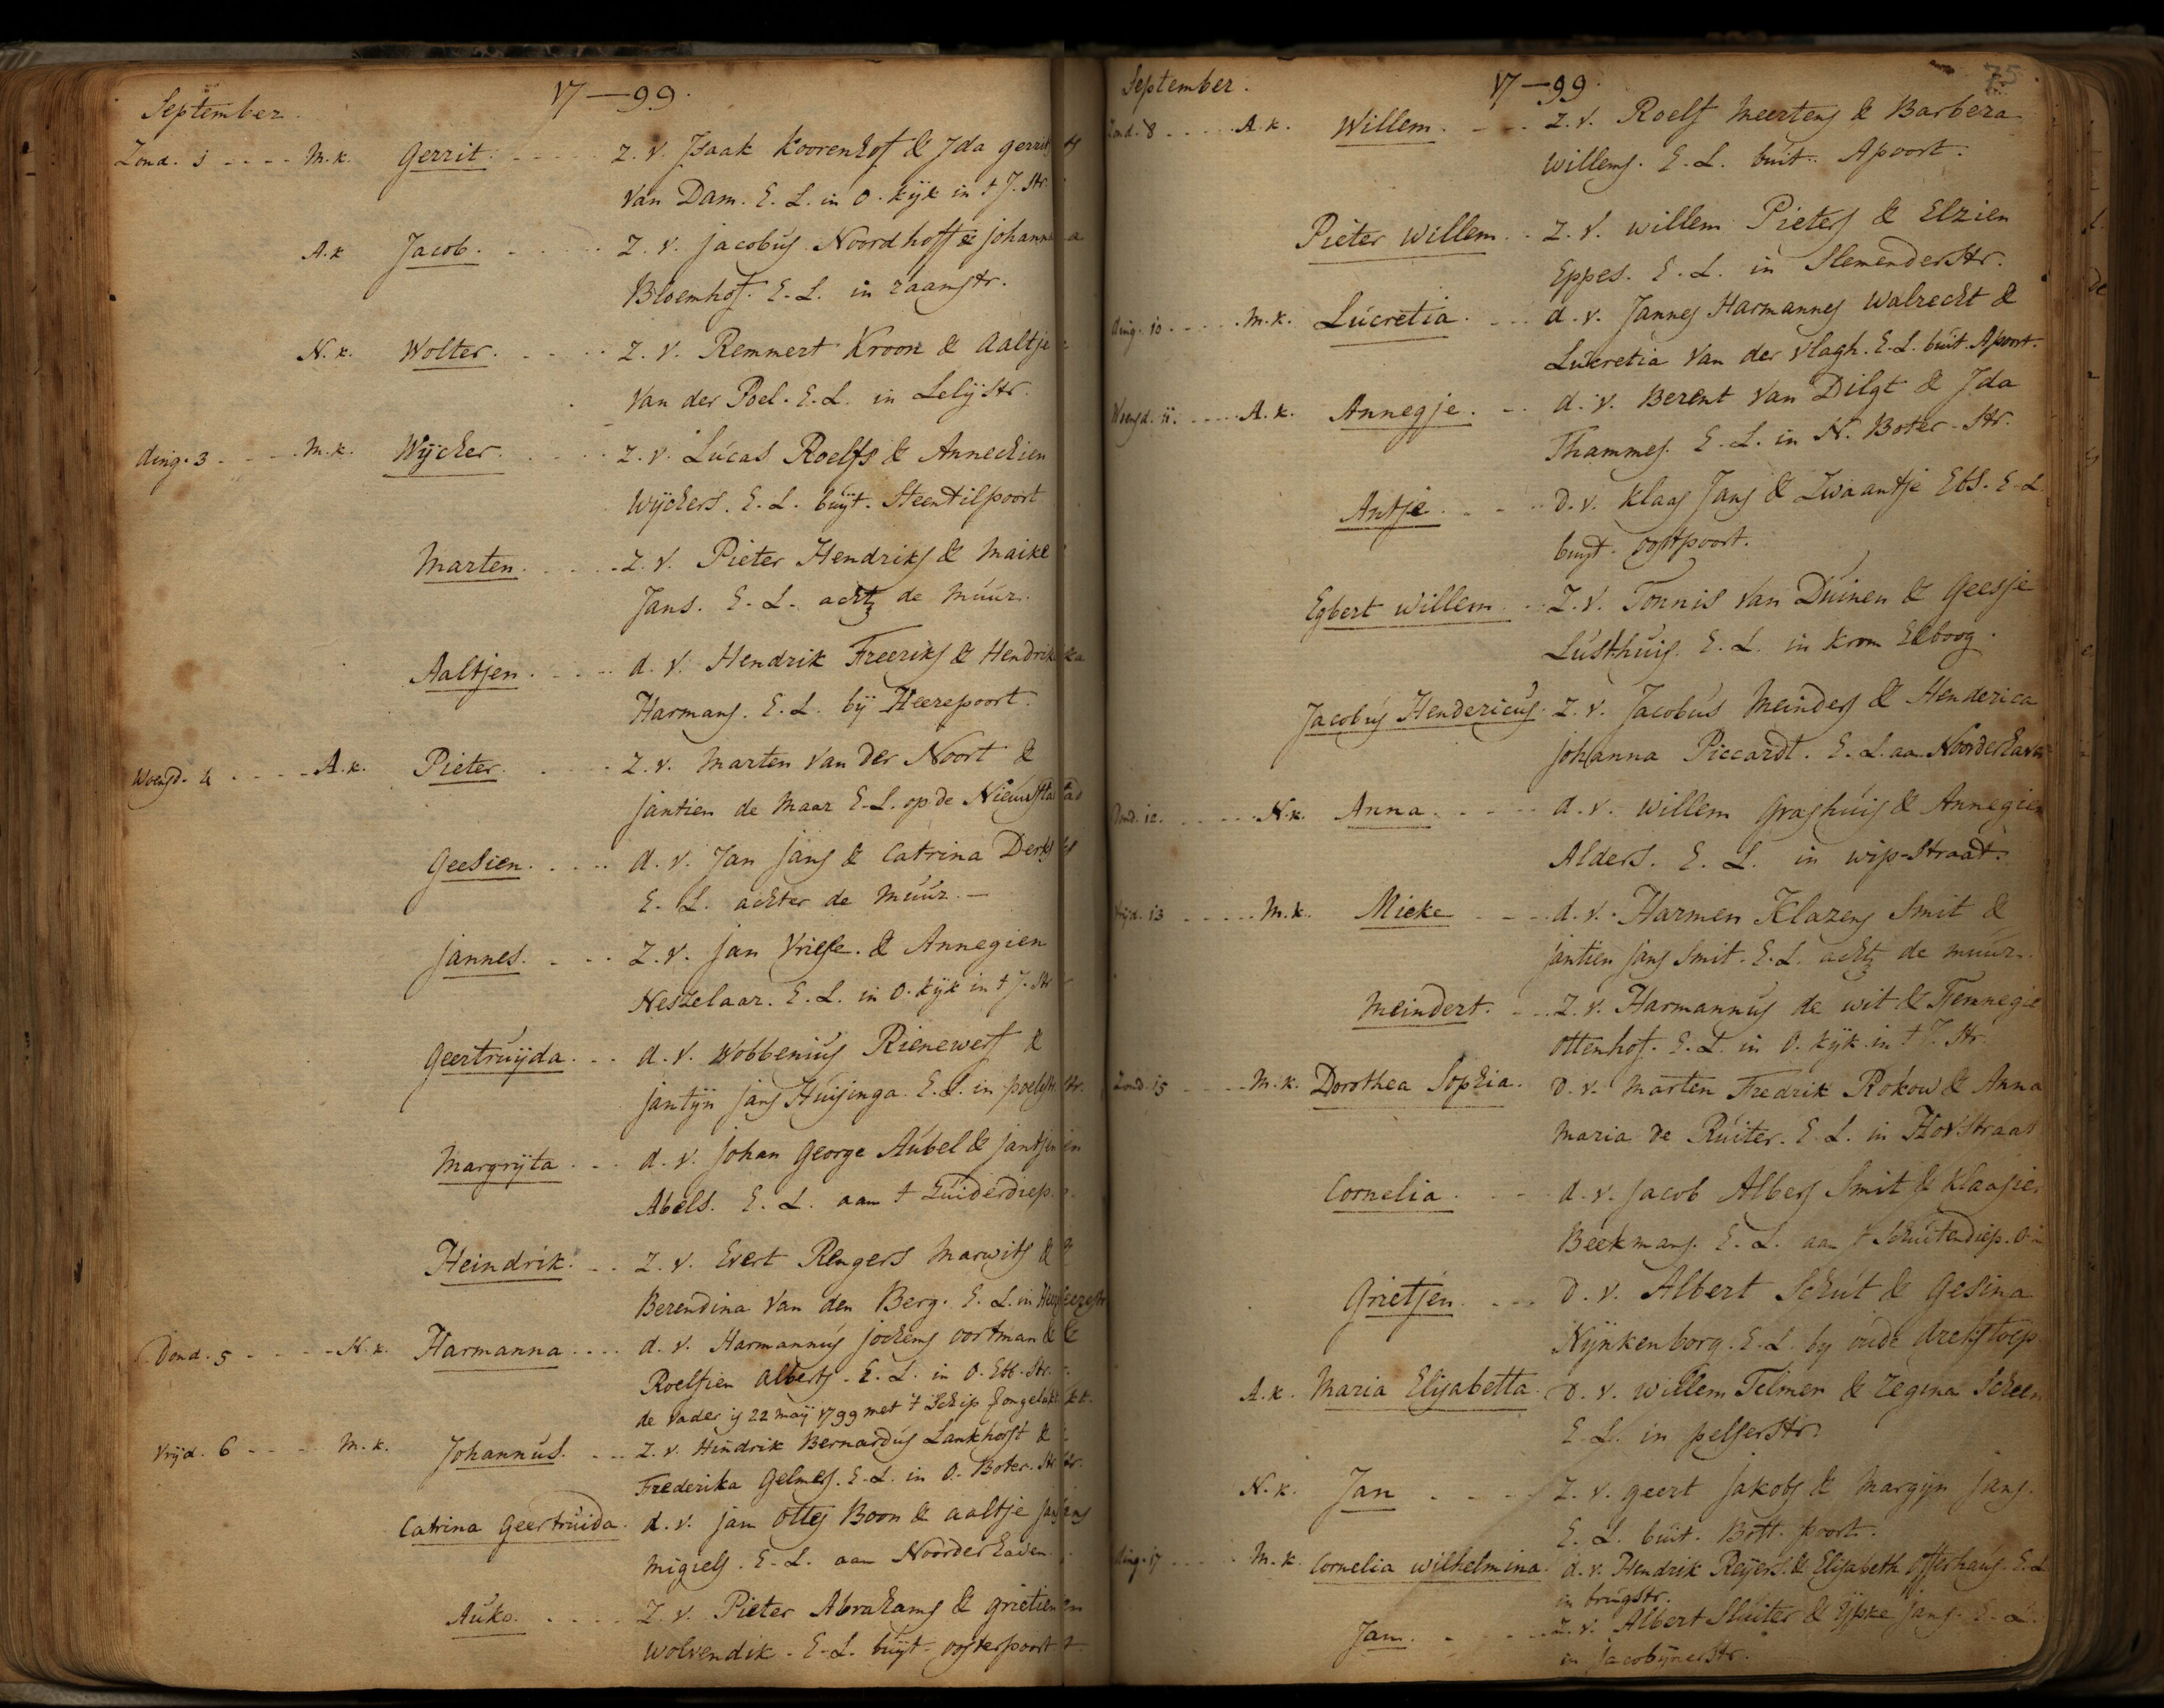 September. 17—99.
Zond. 1 - - - - M.k. Gerrit. - - - - z. v. Isaak Koorenhof & Ida gerrits
Van Dam. E. L. in O. kijk in t J. Str.
A.k Jacob. - - - - z. v. jacobus Noordhoff & johanna
Bloemhof. E. L. in raamstr.
N.k. Wolter. - - - - z. v. Remmert Kroon & Aaltje
Van der Poel. E. L. in Lelijstr.
ding. 3 - - - - M.k. Wijcher. - - - - z. v. Lucas Roelfs & Annechien
Wijchers. E. L. buijt. Steentilpoort
Marten. - - - - z. v. Pieter Hendriks & Maike
Jans. E. L. achtr de Muur.
Aaltjen. - - - - d. v. Hendrik Freeriks & Hendrika
Harmans. E. L. bij Heerepoort.
Woensd. 4 - - - - A.k. Pieter. - - - - z. v. Marten Van der Noort &
jantien de Maar E. L. op de Nieuwstad
Geesien. - - - - d. v. Jan jans & Catrina Derks
E. L. achter de Muur. —
jannes. - - - z. v. jan Vriese. & Annegien
Neszelaar. E. L. in O. kijk in t J. Str
Geertruijda. - - d. v. Wobbenius Rienewerf &
jantijn jans Huisinga. E. L. in poelestr.
Margrijta. - - d. v. johan George Aubel & jantjen
Abels. E. L. aan t Zuiderdiep.
Heindrik. - - z. v. Evert Rengers Marwits &
Berendina Van den Berg. E. L. in Heerestr
Dond. 5 - - - - N.k. Harmanna. - - - d. v. Harmannus jochems oortman &
Roelfien Alberts. E. L. in O. Ebb. Str.
de vader is 22 maij 1799 met t Schip verongelukt.
Vrijd. 6 - - - M.k. Johannus. - - - z. v. Hindrik Bernardus Lankhorst &
Frederika Gelmers. E. L. in O. Boter. Str.
Catrina Geertruida. d. v. jan ottes Boon & aaltje jans
Migiels. E. L. aan Noorderhaven.
Auko. - - - - z. v. Pieter Abrahams & grietien
Wolvendik. E. L. buijt. oosterpoort
September. 17—99. 75
Zond. 8 - - - - A.k. Willem. - - - z. v. Roelf Meertens & Barbera
Willems. E. L. buit. Apoort.
Pieter Willem. - z. v. Willem Pieters & Elzien
Eppes. E. L. in Slemenderstr.
ding. 10 - - - - M.k. Lucretia. - - - d. v. Jannes Harmannes Walrecht &
Lucretia Van der Vlagh. E. L. buit. Apoort.
Woensd. 11. - - - - A.k. Annegje. - - d. v. Berent Van Dilgt & Ida
Thammes. E. L. in N. Boter-Str.
Antje. - - - D. v. Klaas Jans & Zwaantje Ebs. E. L.
buijt. oostpoort.
Egbert Willem. - z. v. Tonnis Van Duinen & Geesje
Lusthuis. E. L. in Krom Elboog.
Jacobus Hendericus. z. v. Jacobus Meinders & Henderica
johanna Piccardt. E. L. aan Noorderhaven
Dond. 12. - - - - N.k. Anna. - - - d. v. Willem Grashuis & Annegien
Alders. E. L. in wip-Straat.
Vrijd. 13 - - - - M.k. Mieke - - - d. v. Harmen Klazens Smit &
jantien jans Smit. E. L. achtr de muur.
Meindert. - - z. v. Harmannus de wit & Tjemnegie
ottenhof. E. L. in O. kijk in t J. Str.
Zond. 15 - - - - M.k. Dorothea Sophia. D. v. Marten Fredrik Rokow & Anna
Maria de Ruiter. E. L. in Hovstraat
Cornelia. - - - d. v. jacob Albers Smit & Klaasien
Beekmans. E. L. aan t Schuitendiep.
Grietjen. - - - D. v. Albert Schut & Gesina
Nijnkenborg. E. L. bij oude
A.k. Maria Elisabetta. D. v. Willem Telmer & regina Scheen
E. L. in pelserstr.
N.k. Jan - - - - z. v. geert jakobs & Margijn jans.
E. L. buit. Bott. poort.
ding. 17 - - - - M.k. Cornelia Wilhelmina. d. v. Hendrik Reijers. & Elisabeth Offerhaus. E. L
in brugstr.
Jan. - - - z. v. Albert Sluiter & Ijske jans. E. L.
in jacobijnerstr.